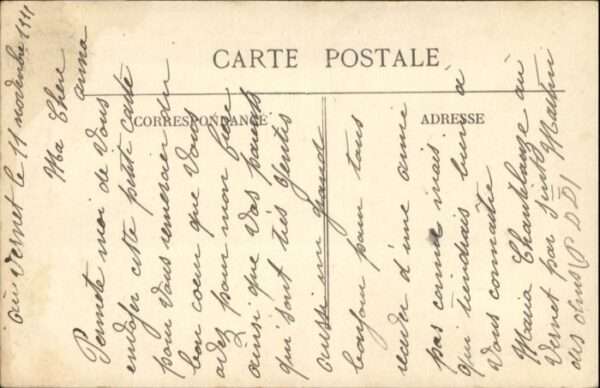 CARTE POSTALE
CORRESPONDANCE
ADRESSE
au Vernet le 11 novembre 1911
Ma Chere
anna
Permete moi de Vous
envoyer cete petite carte
pour Vous remercier du
bon coeur que Vous
avez pour mon frere
ainsi que Vos parents
qui sont très gentis
aussi un grand
bonjour pour tous
de d'une amie
pas connue mais
qui tiendrais bien à
Vous connaitre
Maria Chantelauze au
Vernet par Martin
des olmes P DD